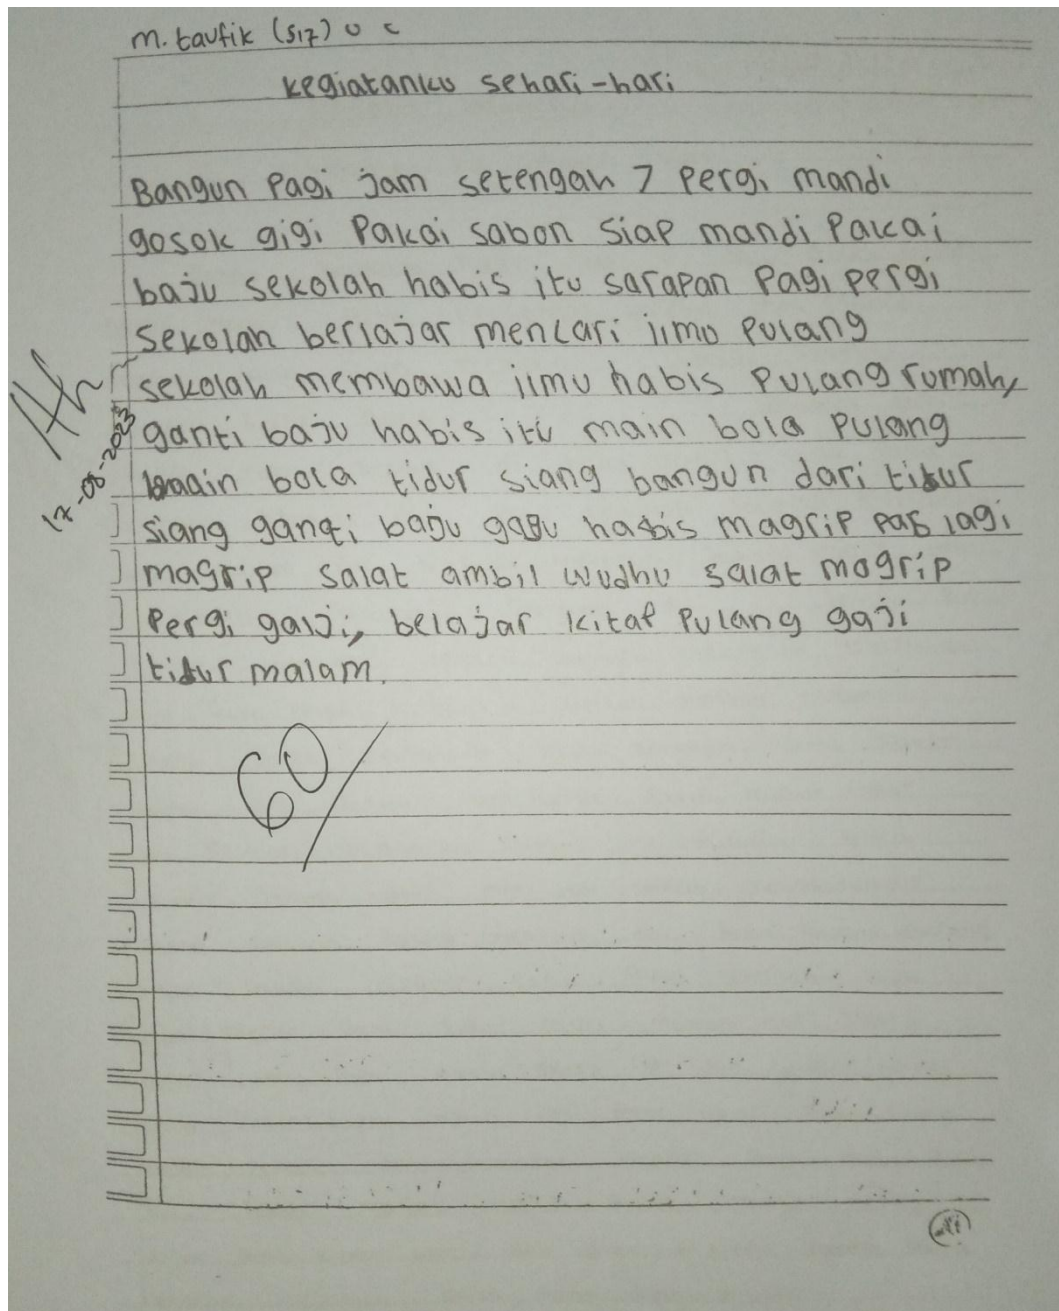 m. taufik (S17)
kegiatanku sehari-hari
Bangun Pagi jam setengah 7 Pergi mandi
gosok gigi Pakai sabon siap mandi Pakai
baju sekolah habis itu sarapan Pagi pergi
sekolah berlajar mencari ilmo Pulang
sekolah membawa ilmu habis Pulang rumah,
ganti baju habis itu main bola Pulang
main bola tidur siang bangun dari tidur
siang ganti baju habis magrip lagi
magrip salat ambil wudhu salat magrip
Pergi belajar kitaf Pulang gaji
tidur malam.
17-08-2023
60